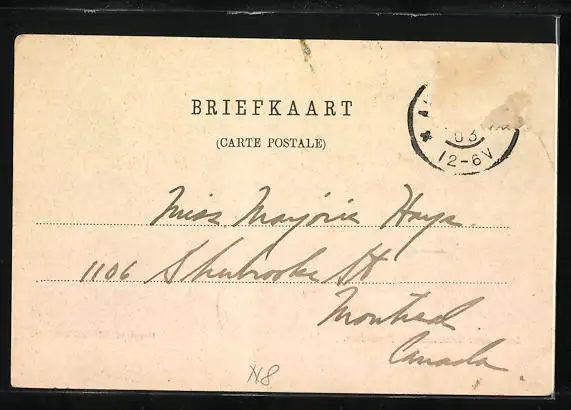 BRIEFKAART
(CARTE POSTALE)
03
12-6V
Miss Marjorie Hays
1106 Sherbrooke St
Montreal
Canada